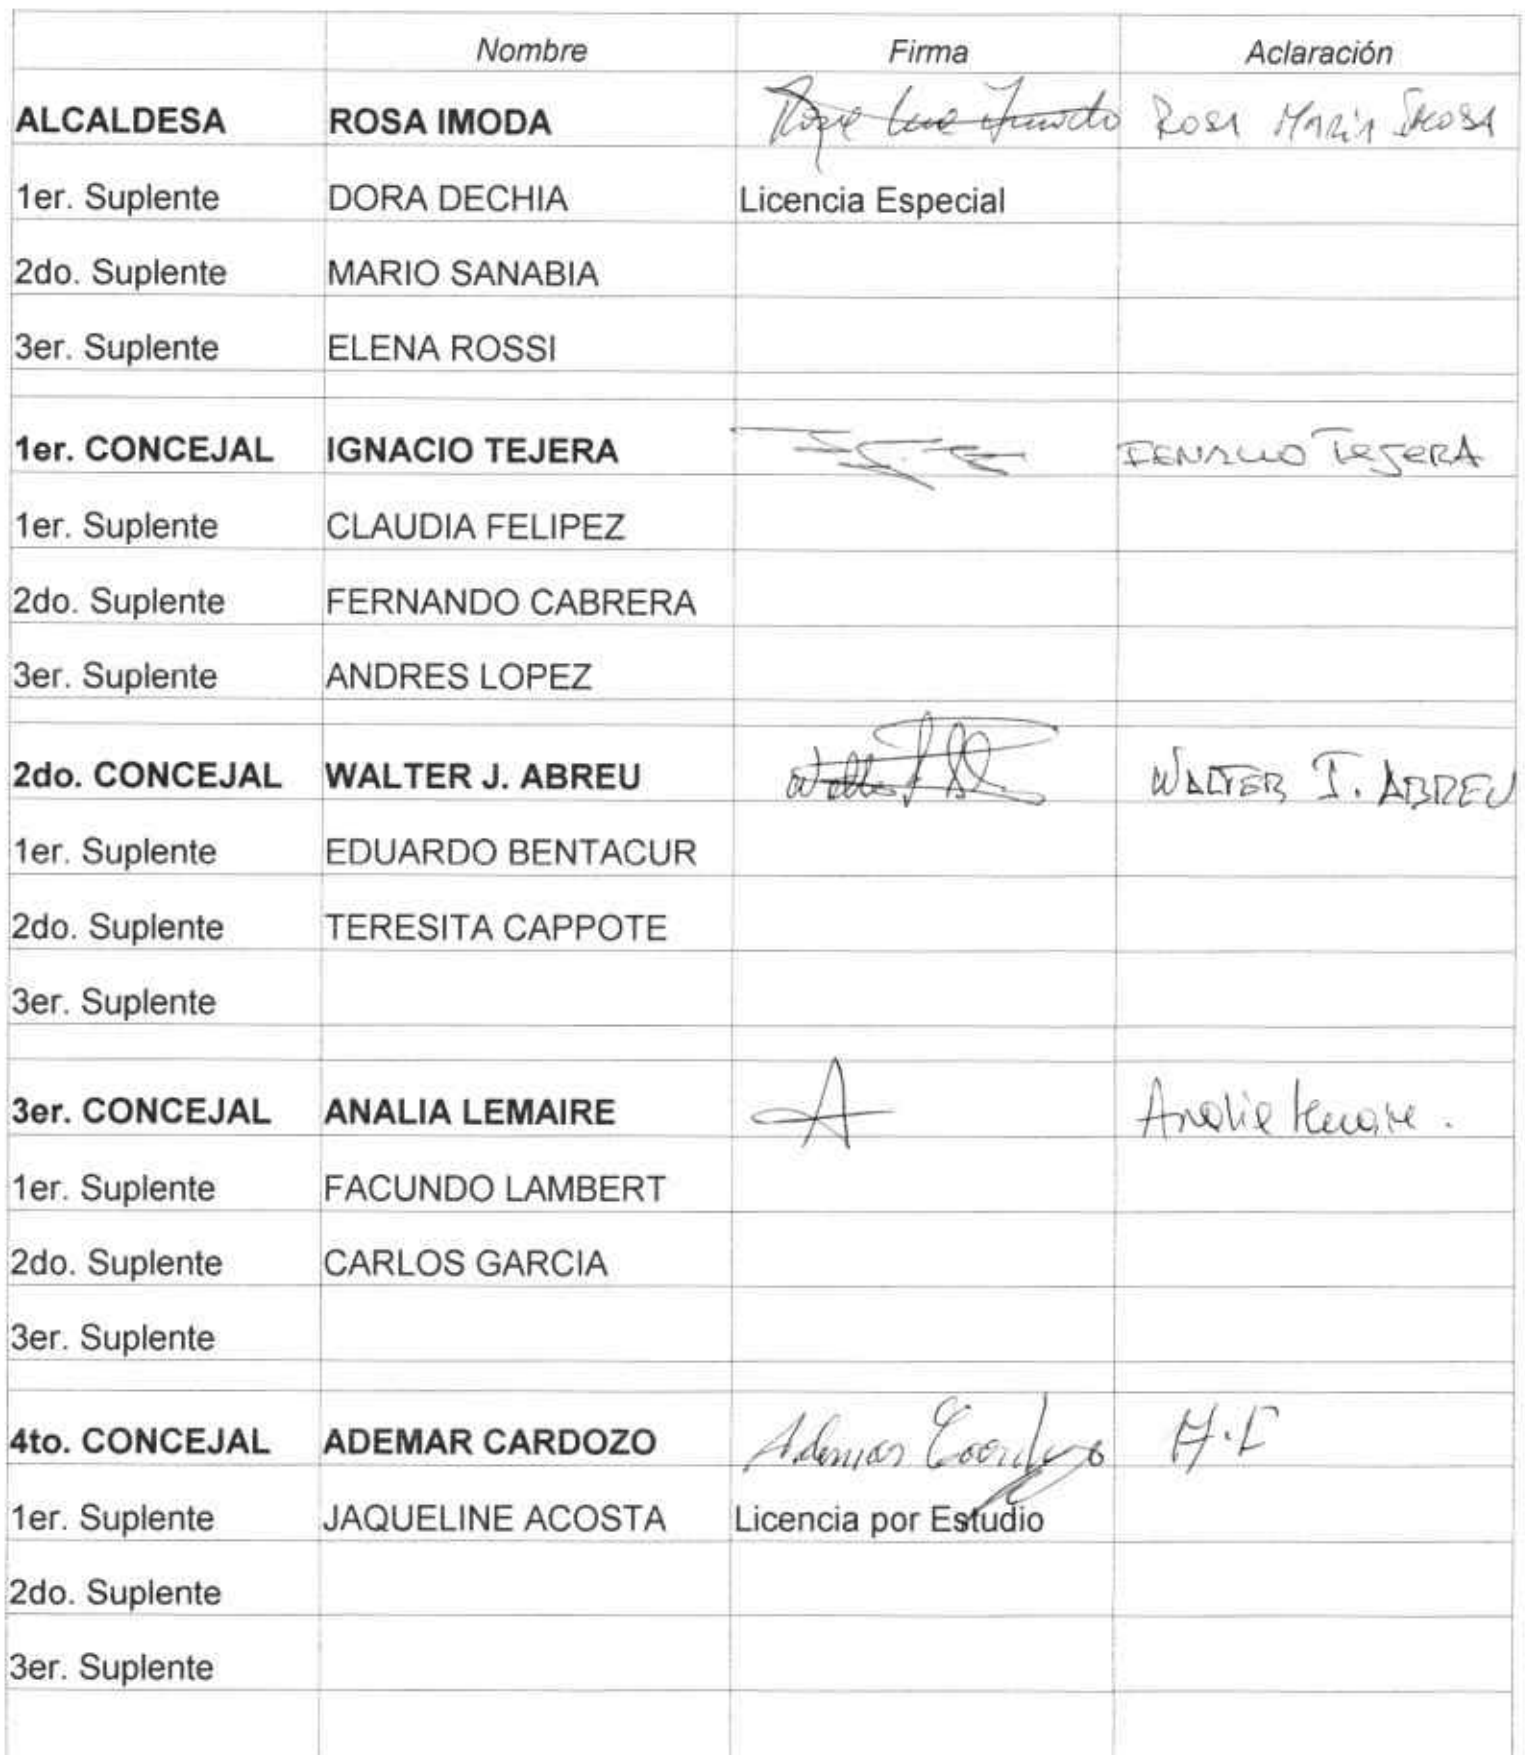 Nombre Firma Aclaración
ALCALDESA ROSA IMODA Rosa Imoda Rosa María
1er. Suplente DORA DECHIA Licencia Especial
2do. Suplente MARIO SANABIA
3er. Suplente ELENA ROSSI
1er. CONCEJAL IGNACIO TEJERA IGNACIO TEJERA
1er. Suplente CLAUDIA FELIPEZ
2do. Suplente FERNANDO CABRERA
3er. Suplente ANDRES LOPEZ
2do. CONCEJAL WALTER J. ABREU Walter WALTER J. ABREU
1er. Suplente EDUARDO BENTACUR
2do. Suplente TERESITA CAPPOTE
3er. Suplente
3er. CONCEJAL ANALIA LEMAIRE A Analia Lemaire.
1er. Suplente FACUNDO LAMBERT
2do. Suplente CARLOS GARCIA
3er. Suplente
4to. CONCEJAL ADEMAR CARDOZO Ademar Cardozo A.C
1er. Suplente JAQUELINE ACOSTA Licencia por Estudio
2do. Suplente
3er. Suplente